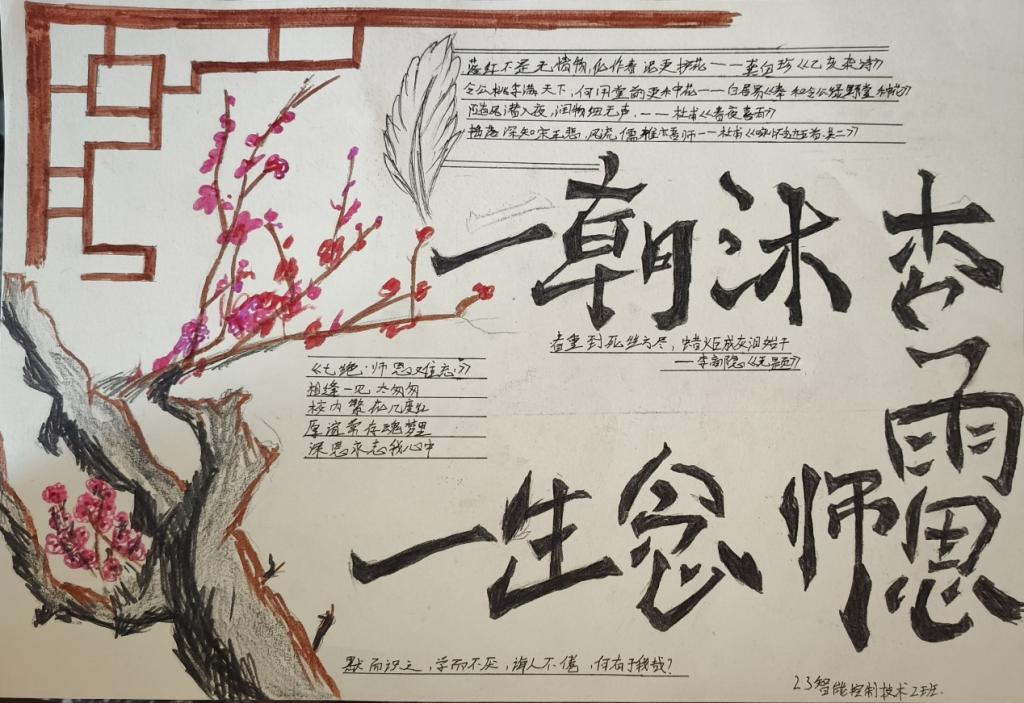 落红不是无情物,化作春泥更护花——龚自珍《己亥杂诗》
令公桃李满天下,何用堂前更种花——白居易《奉和令公绿野堂种花》
随风潜入夜,润物细无声.——杜甫《春夜喜雨》
摇落深知宋玉悲,风流儒雅亦吾师——杜甫《咏怀古迹五首·其二》
一朝沐杏雨
春蚕到死丝方尽,蜡炬成灰泪始干
——李商隐《无题》
《七绝·师恩难忘》
相逢一见太匆匆
校内繁花几度红
厚谊常存魂梦里
深恩永志我心中
一生念师恩
默而识之,学而不厌,诲人不倦,何有于我哉?
23智能控制技术2班.